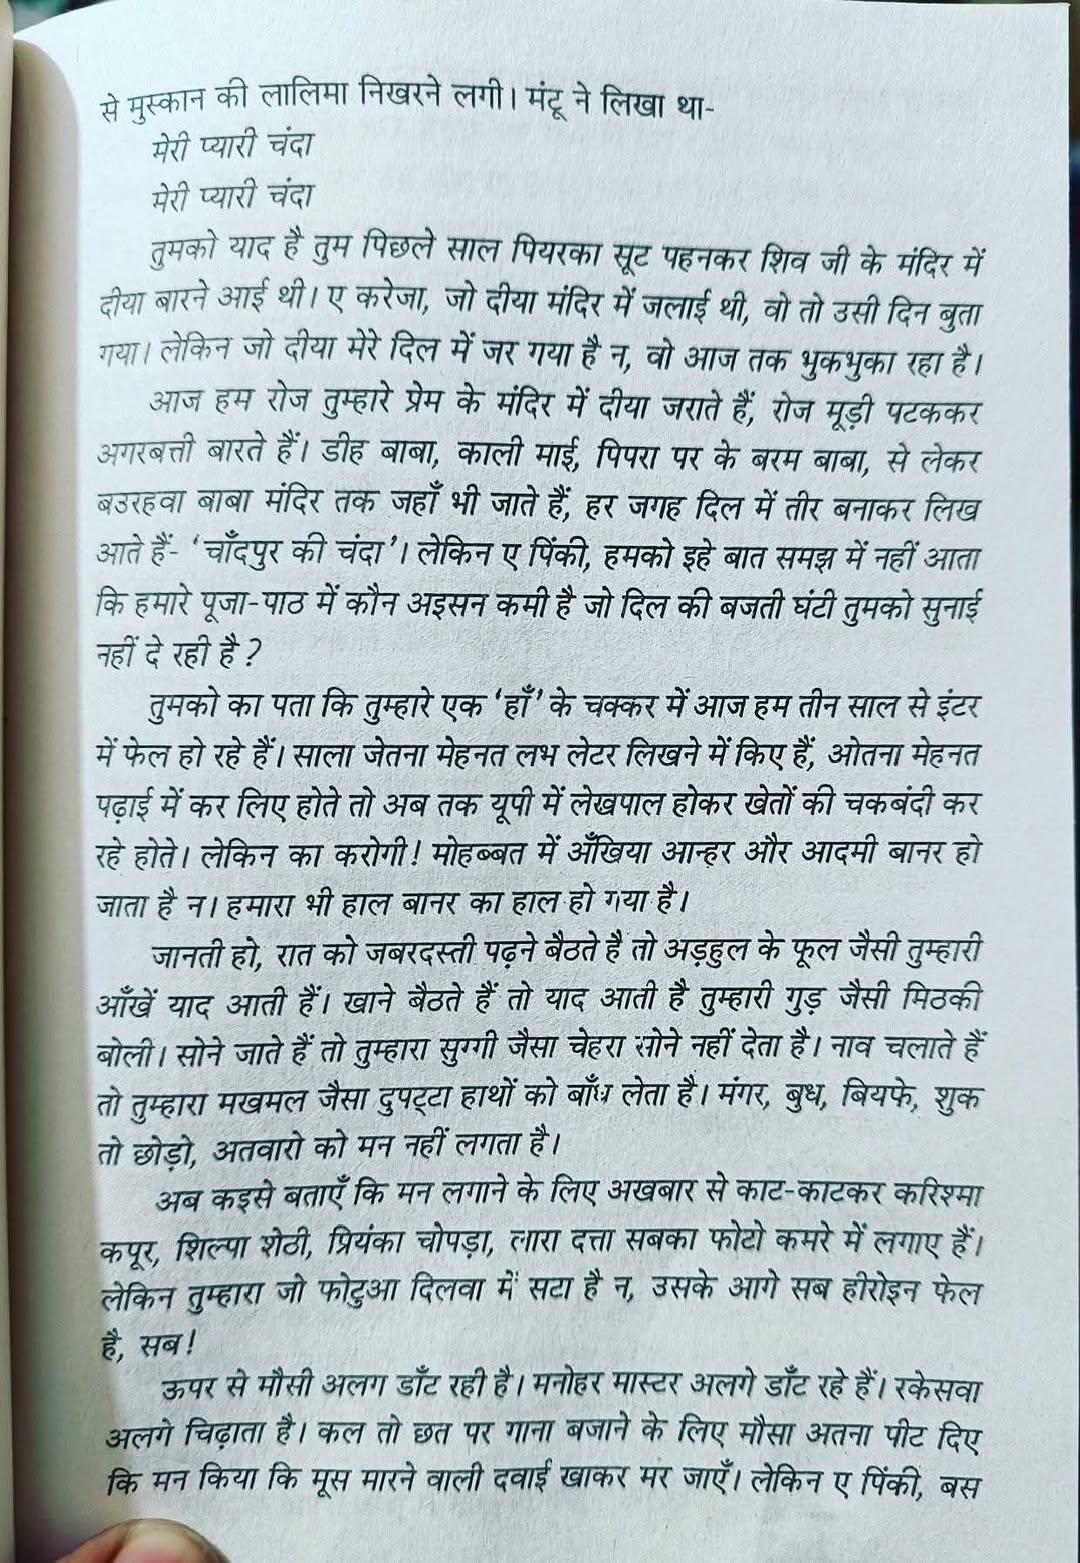 से मुस्कान की लालिमा निखरने लगी। मंटू ने लिखा था-
मेरी प्यारी चंदा
मेरी प्यारी चंदा
तुमको याद है तुम पिछले साल पियरका सूट पहनकर शिव जी के मंदिर में
दीया बारने आई थी। ए करेजा, जो दीया मंदिर में जलाई थी, वो तो उसी दिन बुता
गया। लेकिन जो दीया मेरे दिल में जर गया है न, वो आज तक भुकभुका रहा है।
आज हम रोज तुम्हारे प्रेम के मंदिर में दीया जराते हैं, रोज मूड़ी पटककर
अगरबत्ती बारते हैं। डीह बाबा, काली माई, पिपरा पर के बरम बाबा, से लेकर
बउरहवा बाबा मंदिर तक जहाँ भी जाते हैं, हर जगह दिल में तीर बनाकर लिख
आते हैं- ‘चाँदपुर की चंदा’। लेकिन ए पिंकी, हमको इहे बात समझ में नहीं आता
कि हमारे पूजा-पाठ में कौन अइसन कमी है जो दिल की बजती घंटी तुमको सुनाई
नहीं दे रही है?
तुमको का पता कि तुम्हारे एक ‘हाँ’ के चक्कर में आज हम तीन साल से इंटर
में फेल हो रहे हैं। साला जेतना मेहनत लभ लेटर लिखने में किए हैं, ओतना मेहनत
पढ़ाई में कर लिए होते तो अब तक यूपी में लेखपाल होकर खेतों की चकबंदी कर
रहे होते। लेकिन का करोगी! मोहब्बत में अँखिया आन्हर और आदमी बानर हो
जाता है न। हमारा भी हाल बानर का हाल हो गया है।
जानती हो, रात को जबरदस्ती पढ़ने बैठते हैं तो अड़हुल के फूल जैसी तुम्हारी
आँखें याद आती हैं। खाने बैठते हैं तो याद आती है तुम्हारी गुड़ जैसी मिठकी
बोली। सोने जाते हैं तो तुम्हारा सुग्गी जैसा चेहरा सोने नहीं देता है। नाव चलाते हैं
तो तुम्हारा मखमल जैसा दुपट्टा हाथों को बाँध लेता है। मंगर, बुध, बियफे, शुक
तो छोड़ो, अतवारो को मन नहीं लगता है।
अब कइसे बताएँ कि मन लगाने के लिए अखबार से काट-काटकर करिश्मा
कपूर, शिल्पा शेठी, प्रियंका चोपड़ा, लारा दत्ता सबका फोटो कमरे में लगाए हैं।
लेकिन तुम्हारा जो फोटुआ दिलवा में सटा है न, उसके आगे सब हीरोइन फेल
है, सब!
ऊपर से मौसी अलग डाँट रही है। मनोहर मास्टर अलगे डाँट रहे हैं। रकेसवा
अलगे चिढ़ाता है। कल तो छत पर गाना बजाने के लिए मौसा अतना पीट दिए
कि मन किया कि मूस मारने वाली दवाई खाकर मर जाएँ। लेकिन ए पिंकी, बस